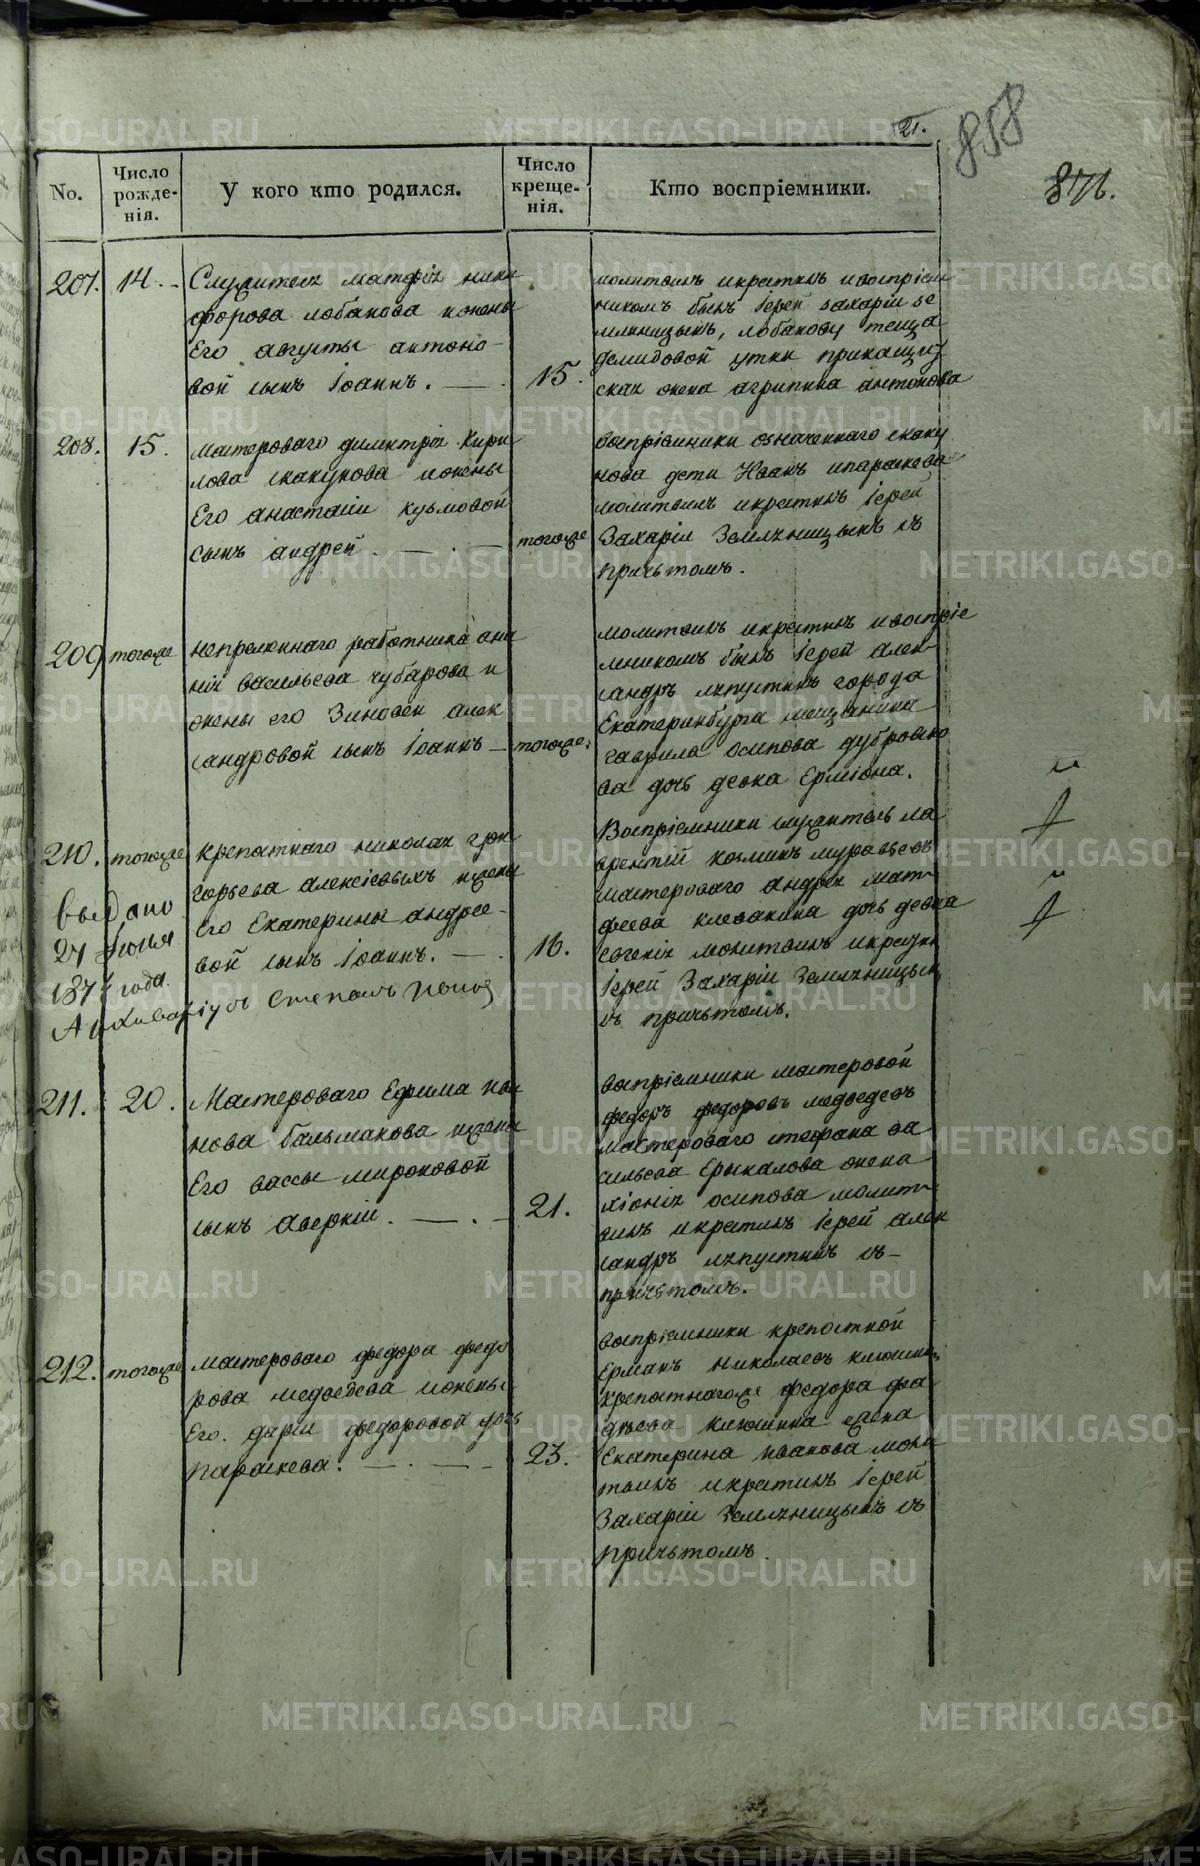 21.
858
871.
No.
Число рожде-нія.
У кого кто родился.
Число креще-нія.
Кто воспріемники.
207.
14.
Служителя матфѣя ники
форова лобанова и жены
Его августы антоно-
вой сынъ Іоаннъ.
15.
молитвилъ икрестилъ ивоспріем
никомъ былъ Іерей захарій зе
мляницынъ, лобанову теща
демидовой утки прикащич
ская жена агрипина антонова
208.
15.
мастероваго димитрія Кири
лова скакунова ижены
Его анастасіи кузьмовой
сынъ андрей.
тогоже
воспріемники означеннаго скаку
нова дети Иванъ ипараскева
молитвилъ икрестилъ Іерей
Захарій Земляницынъ съ
причьтомъ.
209
тогоже
непременнаго работника ана
ніи васильева чубарова и
жены его Зиновеи алек
сандровой сынъ Іоаннъ
тогоже.
молитвилъ икрестилъ ивоспріе
мникомъ былъ Іерей алек-
сандръ ляпустинъ города
Екатеринбурга мещанина
гаврила осипова дубровно
ва дочь девка Ерміона.
210.
тогоже
крепостнаго николая гри
горьева алексіевыхъ ижены
его Екатерины андрее-
вой сынъ Іоаннъ.
16.
Воспріемники служитель ла
врентій козминъ муравьевъ
мастероваго андрея мат-
феева клевакина дочь девка
евгенія молитвилъ икрестилъ
Іерей Захарій Земляницынъ
съ причьтомъ.
Выдано
27 Іюня
187 года.
Архиваріусъ Степанъ Попов
211.
20.
Мастероваго Ефима ива
нова бальмакова ижены
Его вассы мироновой
сынъ аверкій.
21.
воспріемники мастеровой
федоръ федоровъ медведевъ
мастероваго стефана ва
сильева Ерыкалова жена
хіонія осипова молит-
вилъ икрестилъ Іерей алек
сандръ ляпустинъ съ-
причьтомъ.
212.
тогоже
мастероваго федора федо
рова медведева ижены
Его. даріи федоровой дочь
параскева.
23.
воспріемники крепостной
Ерманъ николаевъ клюшин
крепостнагоже федора фа
деева клюшина жена
Екатерина иванова моли
твилъ икрестилъ Іерей
Захарій Земляницынъ съ
причьтомъ.
METRIKI.GASO-URAL.RU